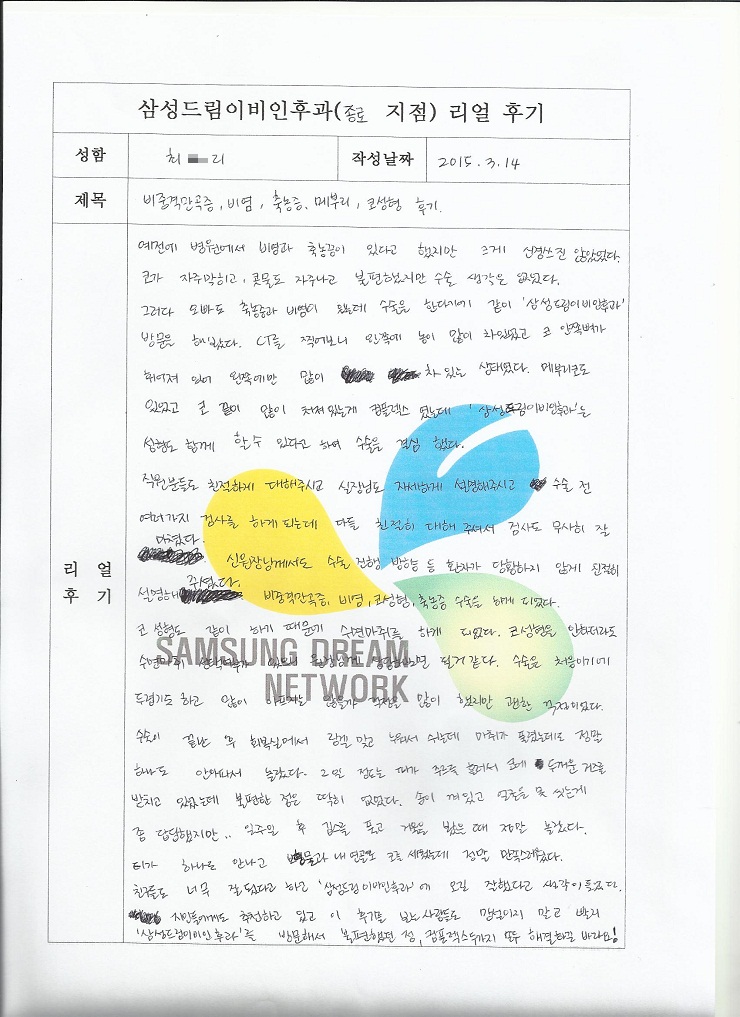 삼성드림이비인후과(종로 지점) 리얼 후기
성함 최 리 작성날짜 2015.3.14
제목 비중격만곡증, 비염, 축농증, 메부리, 코성형 후기.
리 얼
후 기
예전에 병원에서 비염과 축농증이 있다고 했지만 크게 신경쓰진 않았었다.
코가 자주막히고, 콧물도 자주나고 불편했지만 수술 생각은 없었다.
그러다 오빠도 축농증과 비염이 있는데 수술을 한다기에 같이 '삼성드림이비인후과'
방문을 해봤다. CT를 찍어보니 왼쪽에 농이 많이 차있었고 코 안쪽벽가
휘어져 있어 왼쪽에만 많이 차 있는 상태였다. 메부리코도
있었고 코 끝이 많이 쳐져 있는게 컴플렉스 였는데 '삼성드림이비인후과'는
성형도 함께 할수 있다고 하여 수술을 결심 했다.
직원분들도 친절하게 대해주시고 실장님도 자세하게 설명해주시고 수술 전
여러가지 검사를 하게 되는데 다들 친절히 대해 주셔서 검사도 무사히 잘
마쳤다.
신원장님께서도 수술 진행 방향 등 환자가 당황하지 않게 친절히
설명해 주셨다. 비중격만곡증, 비염, 코성형, 축농증 수술을 하게 되었다.
코 성형도 같이 하기 때문에 수면마취를 하게 되었다. 코성형을 안하더라도
수면마취 될거 같다. 수술은 처음이기에
두렵기도 하고 많이 아프지는 않을까 걱정을 많이 했지만 괜한 걱정이었다.
수술이 끝난 후 회복실에서 링겔 맞고 누워서 쉬는데 마취가 풀렸는데도 정말
하나도 안아파서 놀랐다. 2일 정도는 피가 주르륵 흘러서 코에 두꺼운 거즈를
받치고 있었는데 불편한 점은 딱히 없었다. 솜이 껴있고 얼굴을 못 씻는게
좀 답답했지만.. 일주일 후 깁스를 풀고 거울을 봤을 때 정말 놀랐다.
티가 하나도 안나고 내 얼굴로 코를 세웠는데 정말 만족스러웠다.
친구들도 너무 잘됐다고 하고 '삼성드림이비인후과'에 오길 잘했다고 생각이 들었다.
지인들에게도 추천하고 있고 이 후기를 보는 사람들도 망설이지 말고 빨리
'삼성드림이비인후과'를 방문해서 불편했던 점, 컴플렉스 두가지 모두 해결하길 바라요!
SAMSUNG DREAM
NETWORK